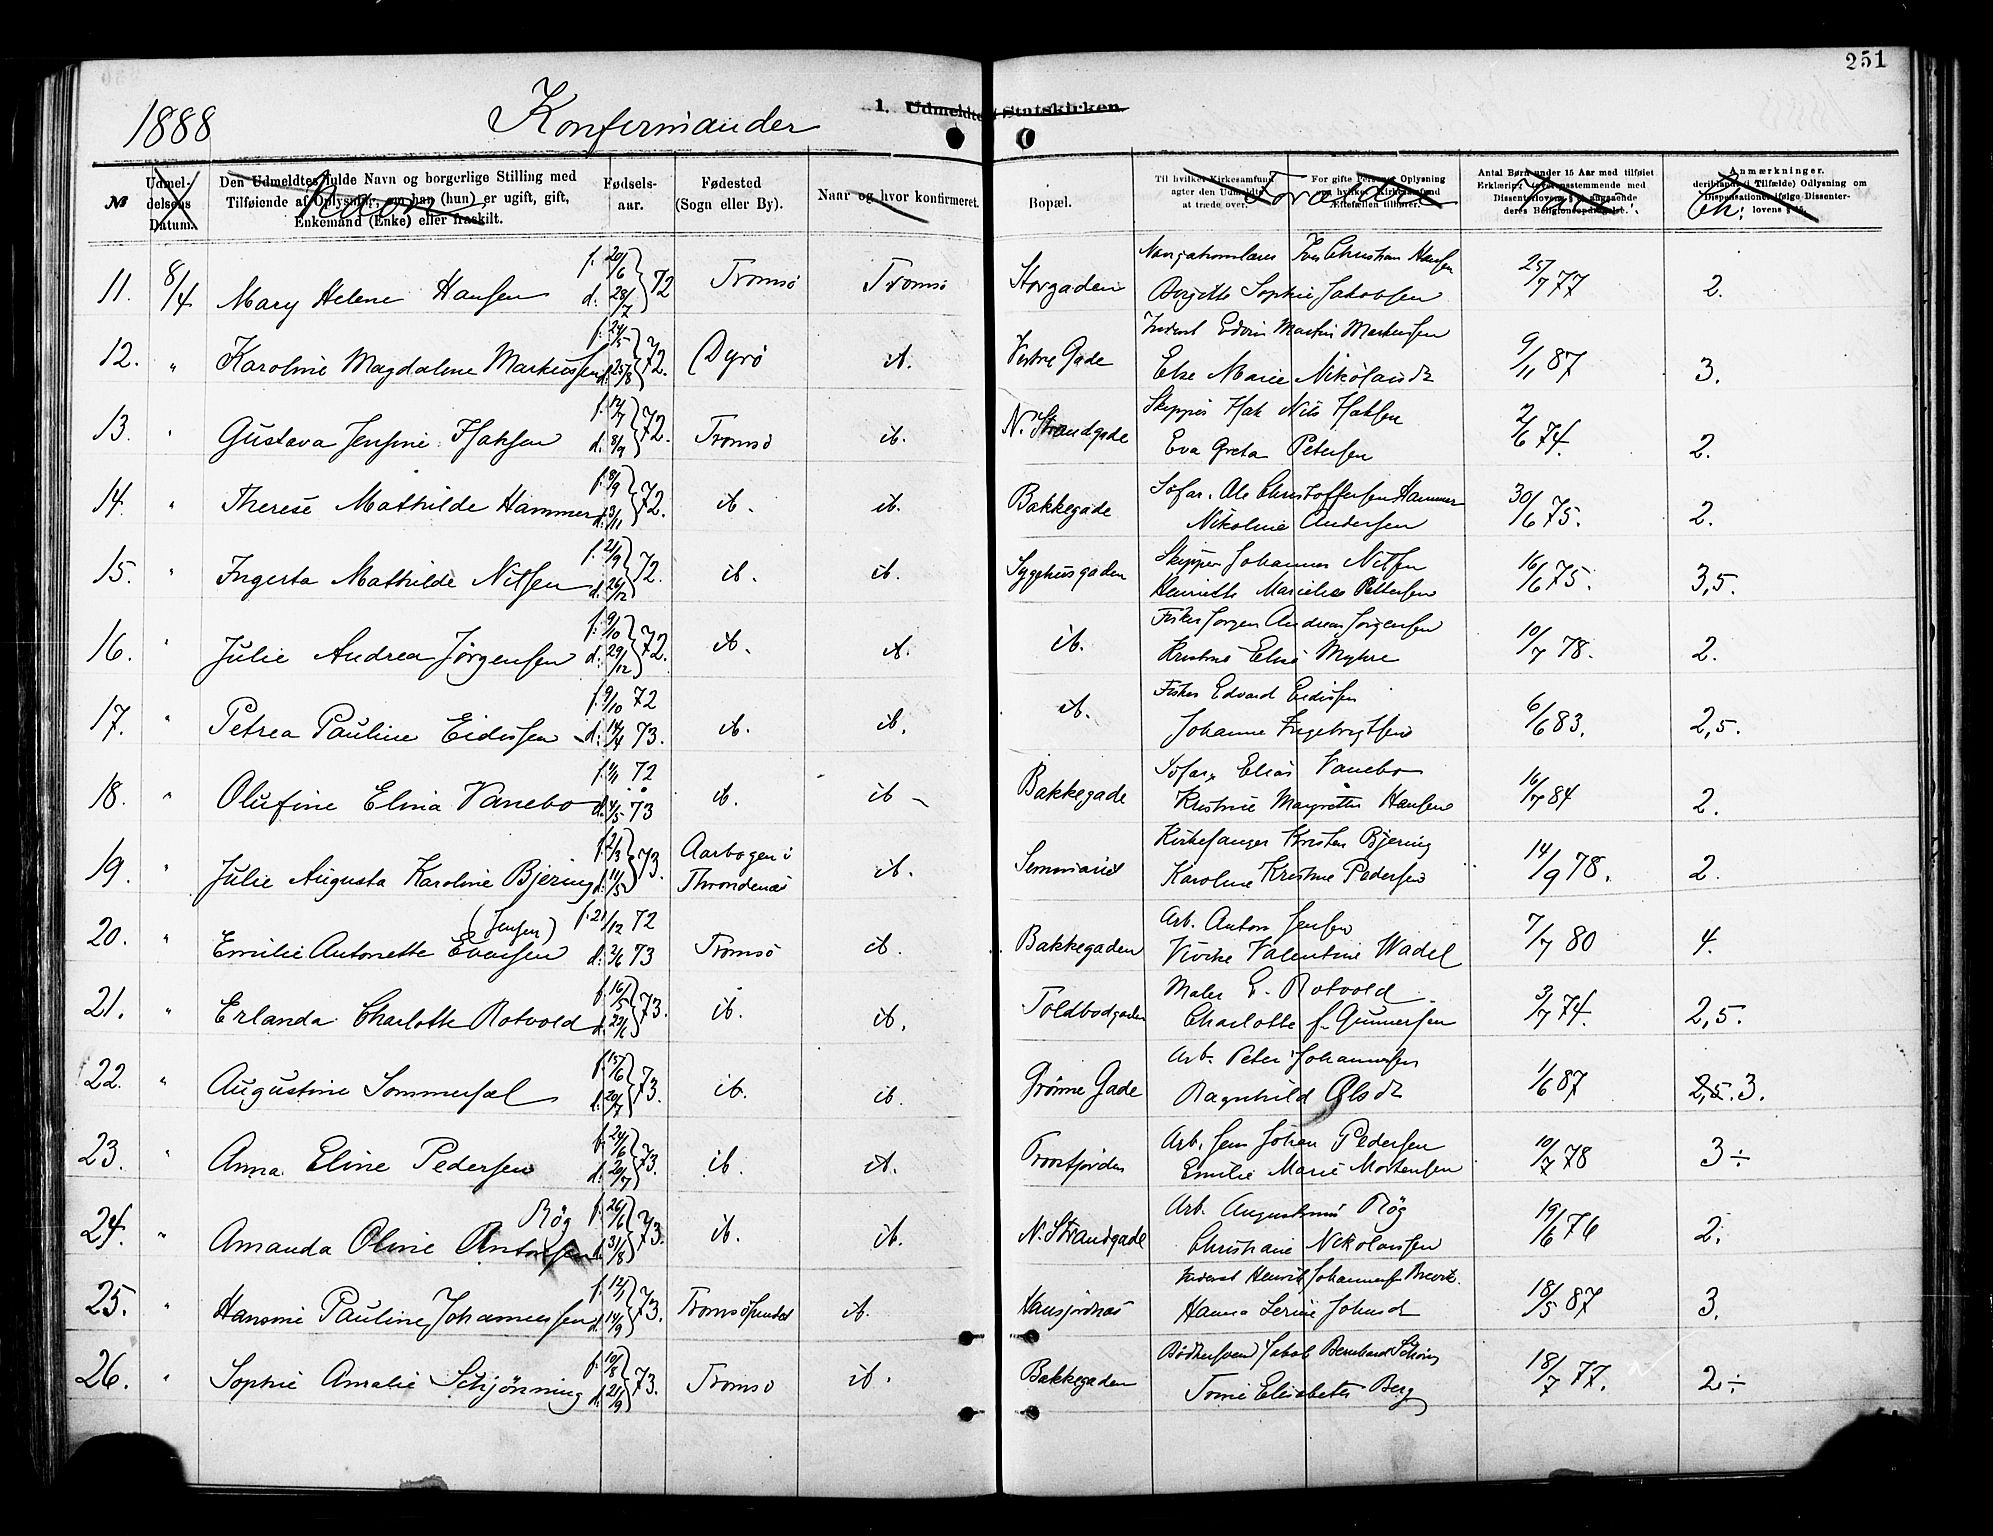 251
1888 Konfirmander 1. Udmeldte Statskirken
№
Udmeldelsens Datum.
Den Udmeldtes fulde Navn og borgerlige Stilling med
Tilføiende af Oplysning, om han (hun) er ugift, gift,
Enkemand (Enke) eller fraskilt.
Navn
Fødselsaar.
Fødested
(Sogn eller By).
Naar og hvor konfirmeret.
Bopæl.
Til hvilket Kirkesamfund
agter den Udmeldte
at træde over.
Forældre
Anmærkninger.
11. 8/4 Mary Helene Hansen f. 20/6 d. 28/7 72 Tromsø Tromsø Storgaden
Iver Christian Hansen
Sophie Jakobsen 25/7 77 2.
12. " Karoline Magdalene Markussen f. 24/5 d. 25/8 72. Dyrø it. Vestre Gade
Inderst Edvin Martin Markussen
Else Marie Nikolaisdr 9/11 87 3.
13. " Gustava Jensine Isaksen f. 12/7 d. 8/9 72. Tromsø it. N. Strandgade
Skipper Isak Nils Isaksen
Eva Greta Petersen 2/6 74. 2.
14. " Therese Mathilde Hammer f. 8/9 d. 3/11 72. it. it. Bakkegade
Søfar. Ole Christoffersen Hammer
Nikoline Andersen 30/6 75. 2.
15. " Ingerta Mathilde Nilsen f. 21/9 d. 26/12 72. it. it. Sygehusgaden
Skipper Johannes Nilsen
Henriette Marielise Pettersen 16/6 75. 3,5.
16. " Julie Andrea Jørgensen f. 9/10 d. 29/12 72. it. it. it.
Fisker Jørgen Andreas Jørgensen
Kristine Elise Myhre 10/7 78. 2.
17. " Petrea Pauline Eidissen f. 9/10 72 d. 14/4 73. it. it. it.
Fisker Edvard Eidissen
Johanne Ingebrigtsen 6/6 83. 2,5.
18. " Olufine Elina Vanebo 72 d. 4/5 73 it. it. Bakkegade
Søfar. Elias Vanebo
Kristine Margrethe Hansen 16/7 84 2.
19. " Julie Augusta Karoline Bjering f. 12/3 d. 11/5 73. Aarbogen i Throndenæs it. Seminariet
Kirkesanger Kristen Bjering
Karoline Kristine Pedersen 14/9 78. 2.
20. " Emilie Antonette Evensen (Jensen) f. 21/12 72 d. 3/6 73 Tromsø it. Bakkegaden
Arb. Anton Jensen
Valentine Wadel 7/7 80 4.
21. " Erlanda Charlotte Rotvold f. 16/5 d. 22/6 73. it. it. Toldbodgaden
Maler E. Rotvold
Charlotte f. Gunnersen 3/7 74. 2,5.
22. " Augustine Sommersæl f. 15/6 d. 20/7 73. it. it. Grønne Gade
Arb. Peter Johannessen
Ragnhild Olsdr 1/6 87 2,5. 3.
23. " Anna Eline Pedersen f. 24/6 d. 20/7 73. it. it.
Arb. Jens Johan Pedersen
Emilie Marie Mortensen 10/7 78 3÷
24. " Amanda Oline Antonsen Røg f. 26/6 d. 31/8 73. it. it. N. Strandgade
Arb. Augustinus Røg
Christiane Nikolaisen 19/6 76 2.
25. " Hansine Pauline Johannessen f. 12/7 d. 14/9 73. Tromsøsundet it. Hansjordnæs
Inderst Henrik Johannessen
Hanna Serine Johnsd 18/5 87 3.
26. " Sophie Amalie Schjønning f. 10/8 d. 21/9 73. Tromsø it. Bakkegaden
Bødkersvend Jakob Bernhard
Tomine Elisabeth Berg 18/7 77. 2÷